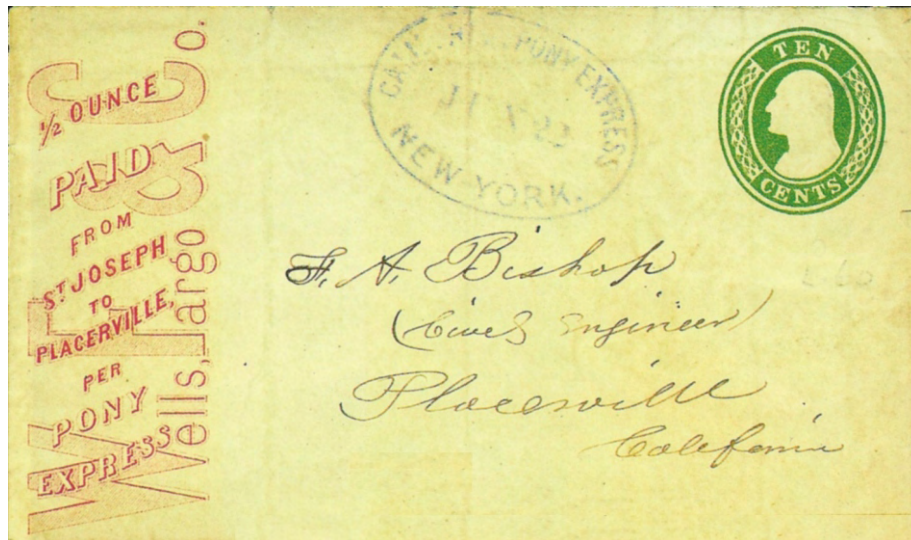 ½ OUNCE
PAID
FROM
ST JOSEPH
TO
PLACERVILLE,
PER
PONY
EXPRESS
Wells, Fargo & Co.
PONY EXPRESS
22
NEW-YORK.
TEN
CENTS
F. A. Bishop
(Civel Engineer)
Placerville
California
L60